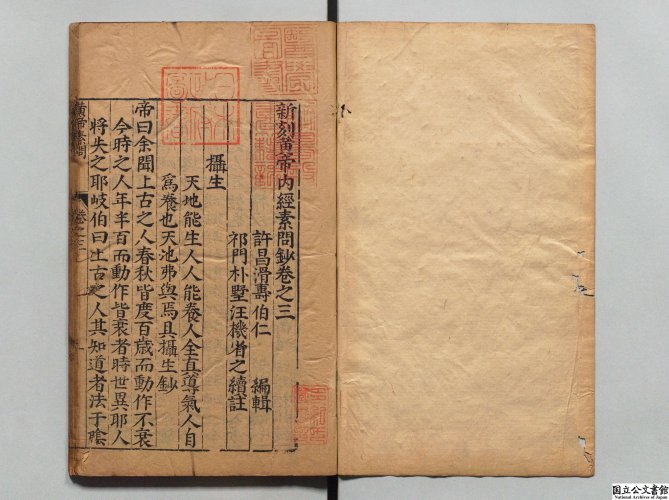 新刻黃帝内經素問鈔卷之三
許昌滑壽伯仁 編輯
祁門朴墅汪機省之續註
攝生
天地能生人人能養人全真導氣人自
爲養也天地弗與焉具攝生鈔
帝曰余聞上古之人春秋皆度百歲而動作不衰
今時之人年半百而動作皆衰者時世異耶人
將失之耶岐伯曰上古之人其知道者法于陰
黃帝素問
卷之三
国立公文書館
National Archives of Japan